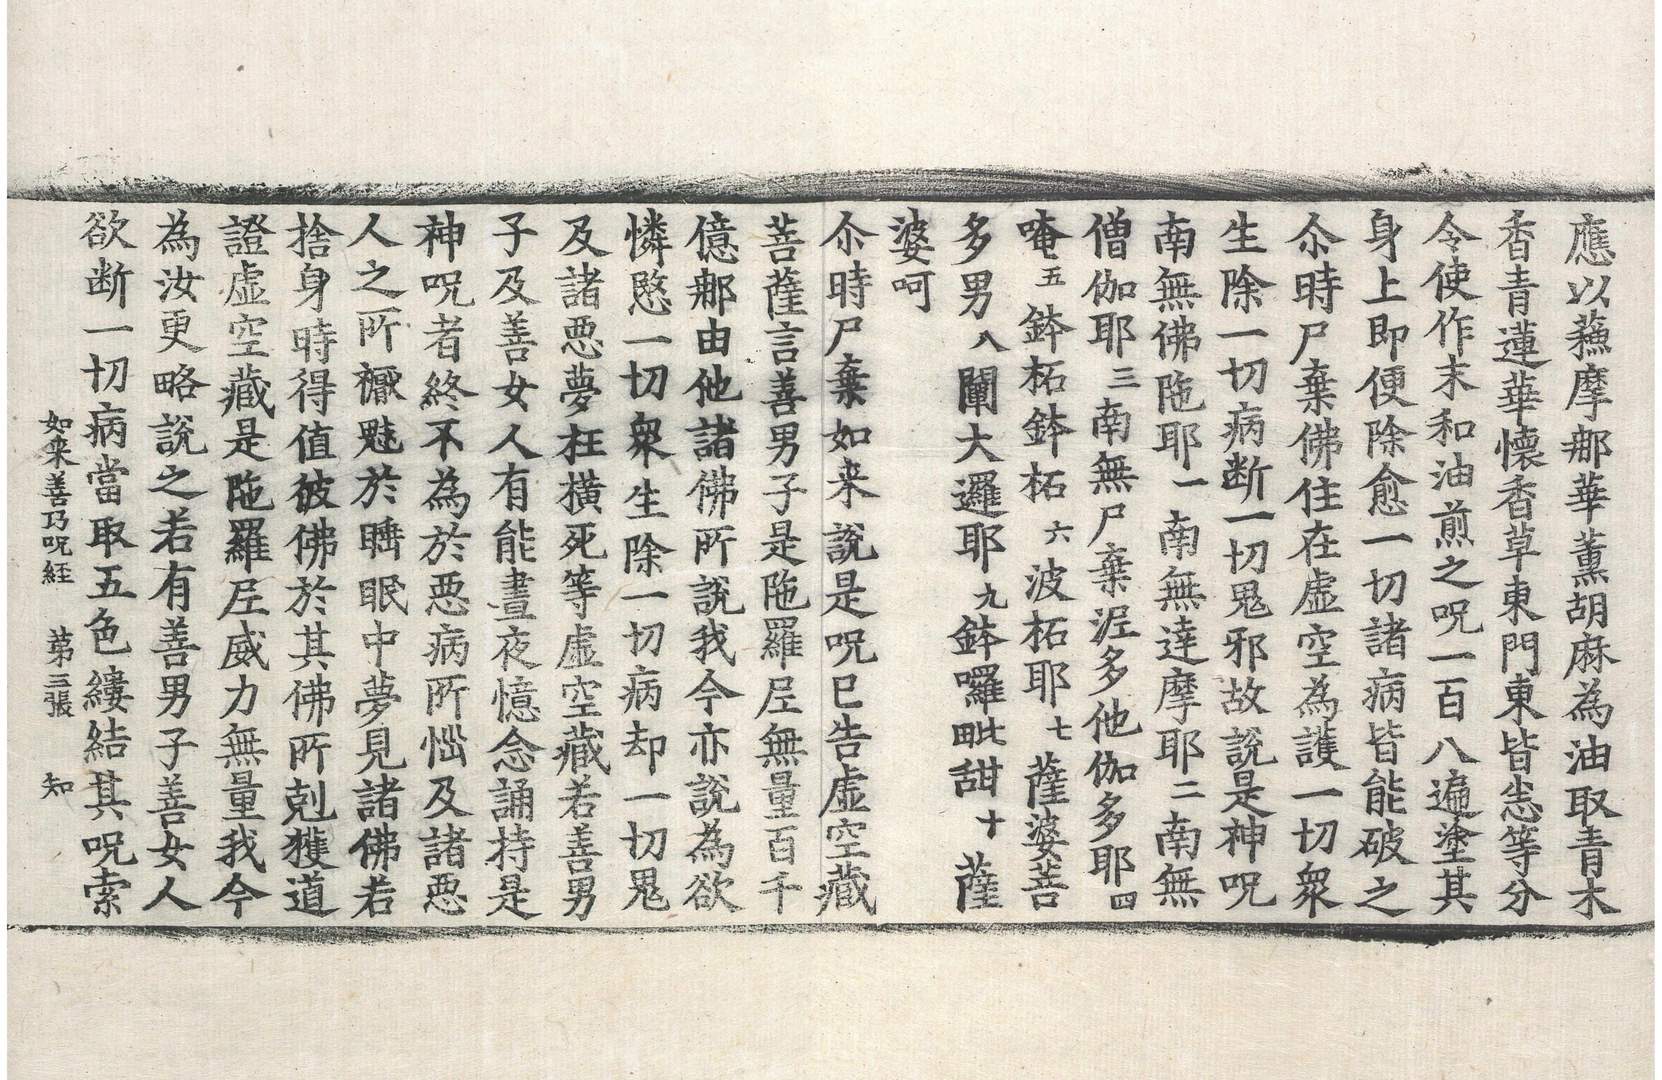 應以蘓摩那華薰胡麻為油取青木
香青蓮華懷香草東門東皆悉等分
令使作末和油煎之呪一百八遍塗其
身上即便除愈一切諸病皆能破之
尒時尸棄佛住在虛空為護一切衆
生除一切病断一切鬼邪故説是神呪
南無佛陁耶一南無達摩耶二南無
僧伽耶三南無尸棄浘多他伽多耶四
唵五鉢柘鉢柘六波柘耶七薩婆菩
多男八闡大邏耶九鉢囉毗甜十薩
婆呵
尒時尸棄如来説是呪已告虛空藏
菩薩言善男子是陁羅尼無量百千
億那由他諸佛所説我今亦説為欲
憐愍一切衆生除一切病却一切鬼
及諸惡夢枉橫死等虛空藏若善男
子及善女人有能晝夜憶念誦持是
神呪者終不為於惡病所惱及諸惡
人之所禰魅於睡眠中夢見諸佛若
捨身時得值彼佛於其佛所剋獲道
證虛空藏是陁羅尼威力無量我今
為汝更略説之若有善男子善女人
欲断一切病當取五色縷結其呪索
如来善乃呪経 苐三張 知